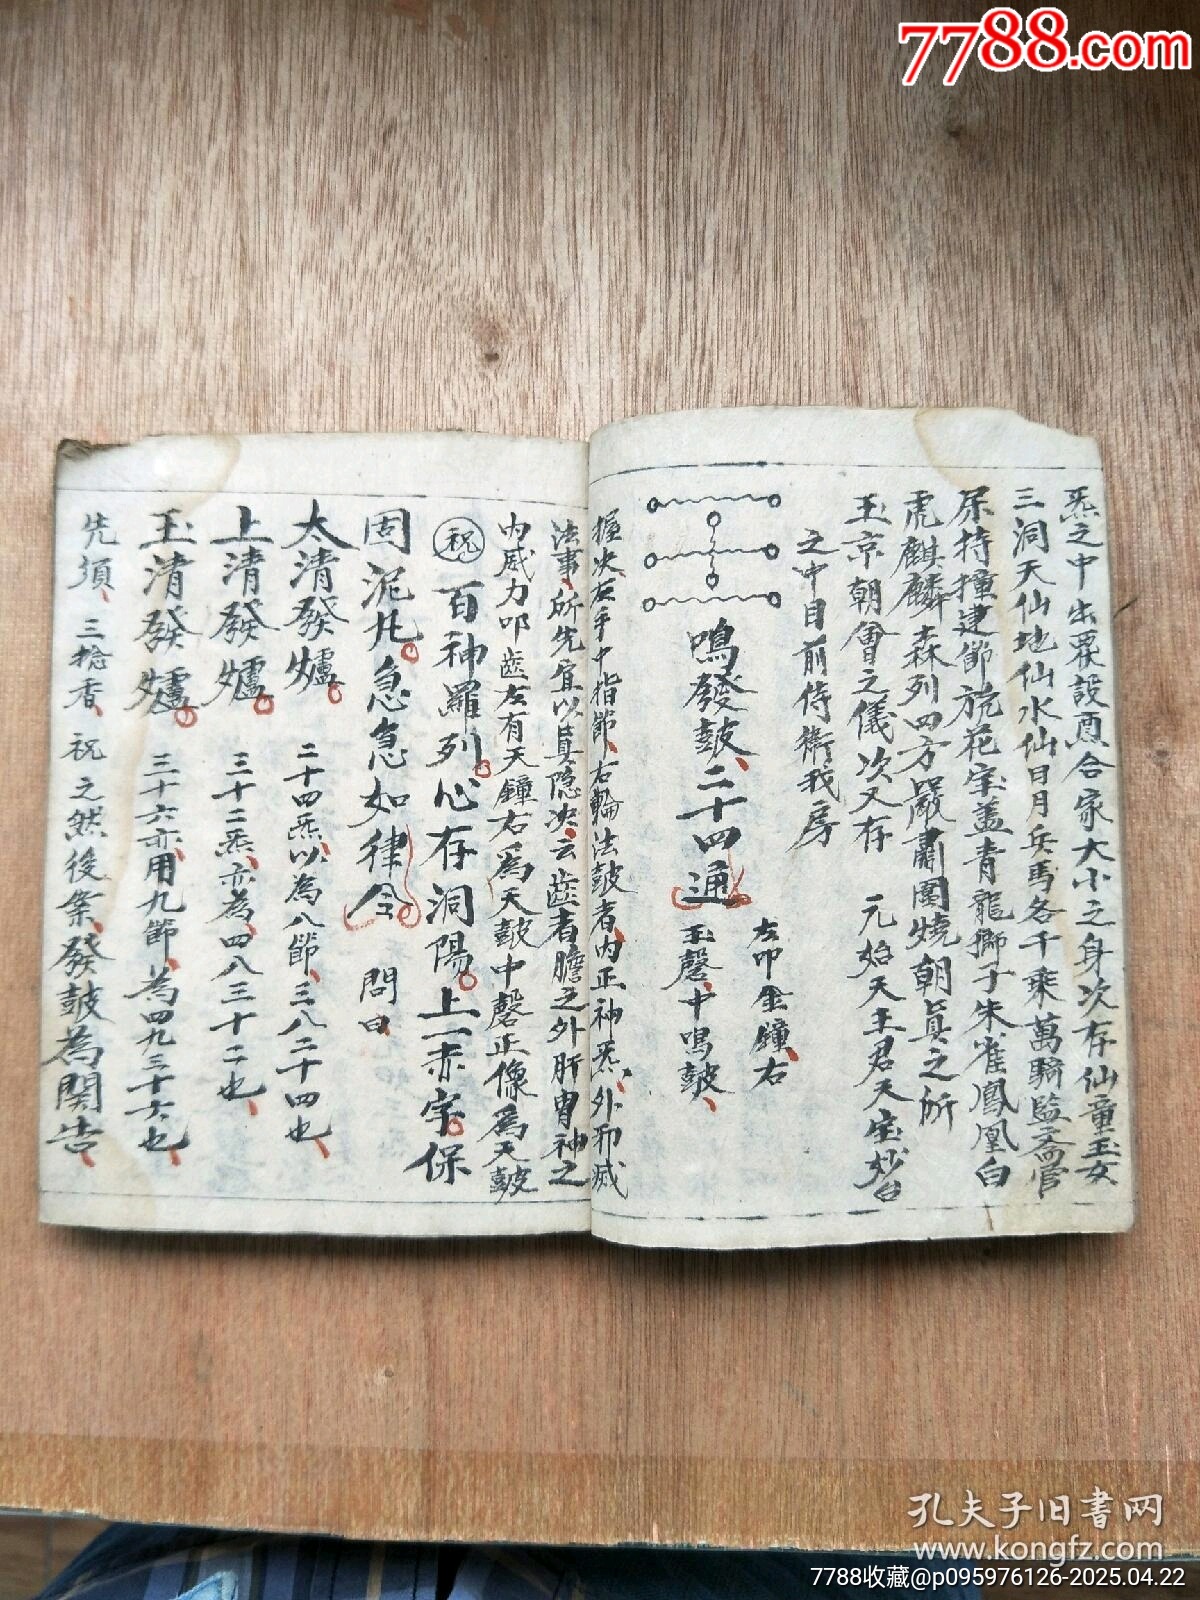 7788.com
炁之中出眾設真合家大小之身次存仙童玉女
三洞天仙地仙水仙日月兵馬各千乘萬騎監斋官
尿持撞建節旄花宝盖青龍獅子朱雀鳳凰白
虎麒麟森列四方嚴肅圍燒朝真之所
玉京朝會之儀次又存 元始天王君天宝妙台
之中目前侍衛我房
左叩金鐘、右
鳴發皷、二十四通 玉磬、中鳴皷、
握决、左手中指節、右輪法皷者、内正神炁、外邪滅
法事、所先宜以真隐决、云齒者膽之外肝胃神之
内威力叩齒左有天鐘右爲天皷中磬正像爲天皷
祝 百神羅列。心存洞陽。上一赤字。保
固泥丸。急急如律令 問曰
太清發爐。 二十四炁、以為八節、三八二十四也、
上清發爐。 三十二炁、亦為、四八三十二也、
玉清發爐。 三十六亦、用九節、為四九三十六也、
先須、三捻香、祝之然後集、發皷為関告、
孔夫子旧書网
www.kongfz.com
7788收藏@p095976126-2025.04.22